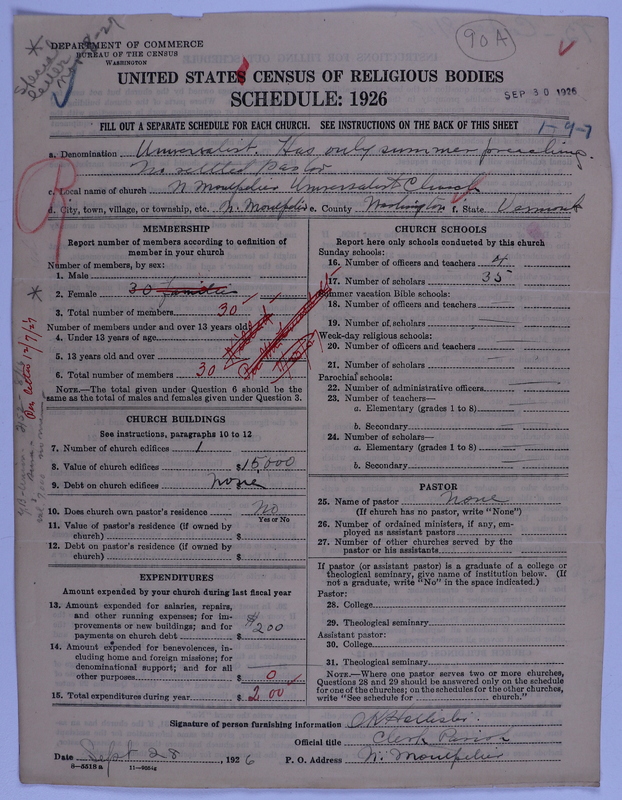 DEPARTMENT OF COMMERCE
BUREAU OF THE CENSUS
WASHINGTON
90A
UNITED STATES CENSUS OF RELIGIOUS BODIES
SCHEDULE: 1926
SEP 30 1926
FILL OUT A SEPARATE SCHEDULE FOR EACH CHURCH. SEE INSTRUCTIONS ON THE BACK OF THIS SHEET
1-9-7
a. Denomination Universalist. Has only summer preaching.
No settled Pastor
c. Local name of church N Montpelier Universalist Church
d. City, town, village, or township, etc. N. Montpelier e. County Washington f. State Vermont
MEMBERSHIP
Report number of members according to definition of
member in your church
Number of members, by sex:
1. Male
2. Female 30
3. Total number of members 30
Number of members under and over 13 years old:
4. Under 13 years of age
5. 13 years old and over
6. Total number of members 30
NOTE.—The total given under Question 6 should be
same as the total of males and females given under Question 3.
CHURCH BUILDINGS
See instructions, paragraphs 10 to 12
7. Number of church edifices 1
8. Value of church edifices $15,000
9. Debt on church edifices none
10. Does church own pastor's residence? No
Yes or No
11. Value of pastor's residence (if owned by
church) $
12. Debt on pastor's residence (if owned by
church) $
EXPENDITURES
Amount expended by your church during last fiscal year
13. Amount expended for salaries, repairs,
and other running expenses; for im-
provements or new buildings; and for
payments on church debt $200
14. Amount expended for benevolences, in-
cluding home and foreign missions; for
denominational support; and for all
other purposes $ 0
15. Total expenditures during year $200
CHURCH SCHOOLS
Report here only schools conducted by this church
Sunday schools:
16. Number of officers and teachers 4
17. Number of scholars 35
Summer vacation Bible schools:
18. Number of officers and teachers
19. Number of scholars
Week-day religious schools:
20. Number of officers and teachers
21. Number of scholars
Parochial schools:
22. Number of administrative officers
23. Number of teachers—
a. Elementary (grades 1 to 8)
b. Secondary
24. Number of scholars—
a. Elementary (grades 1 to 8)
b. Secondary
PASTOR
25. Name of pastor None
(If church has no pastor, write "None")
26. Number of ordained ministers, if any, em-
ployed as assistant pastors
27. Number of other churches served by the
pastor or his assistants
If pastor (or assistant pastor) is a graduate of a college or
theological seminary, give name of institution below. (If
not a graduate, write "No" in the space indicated.)
Pastor:
28. College
29. Theological seminary
Assistant pastor:
30. College
31. Theological seminary
NOTE.—Where one pastor serves two or more churches,
Questions 28 and 29 should be answered only on the schedule
for one of the churches; on the schedules for the other churches,
write "See schedule for church."
Signature of person furnishing information
Official title Clerk Parish
Date Sept 28, 1926 P. O. Address N. Montpelier
8—5518 a 11—9054g